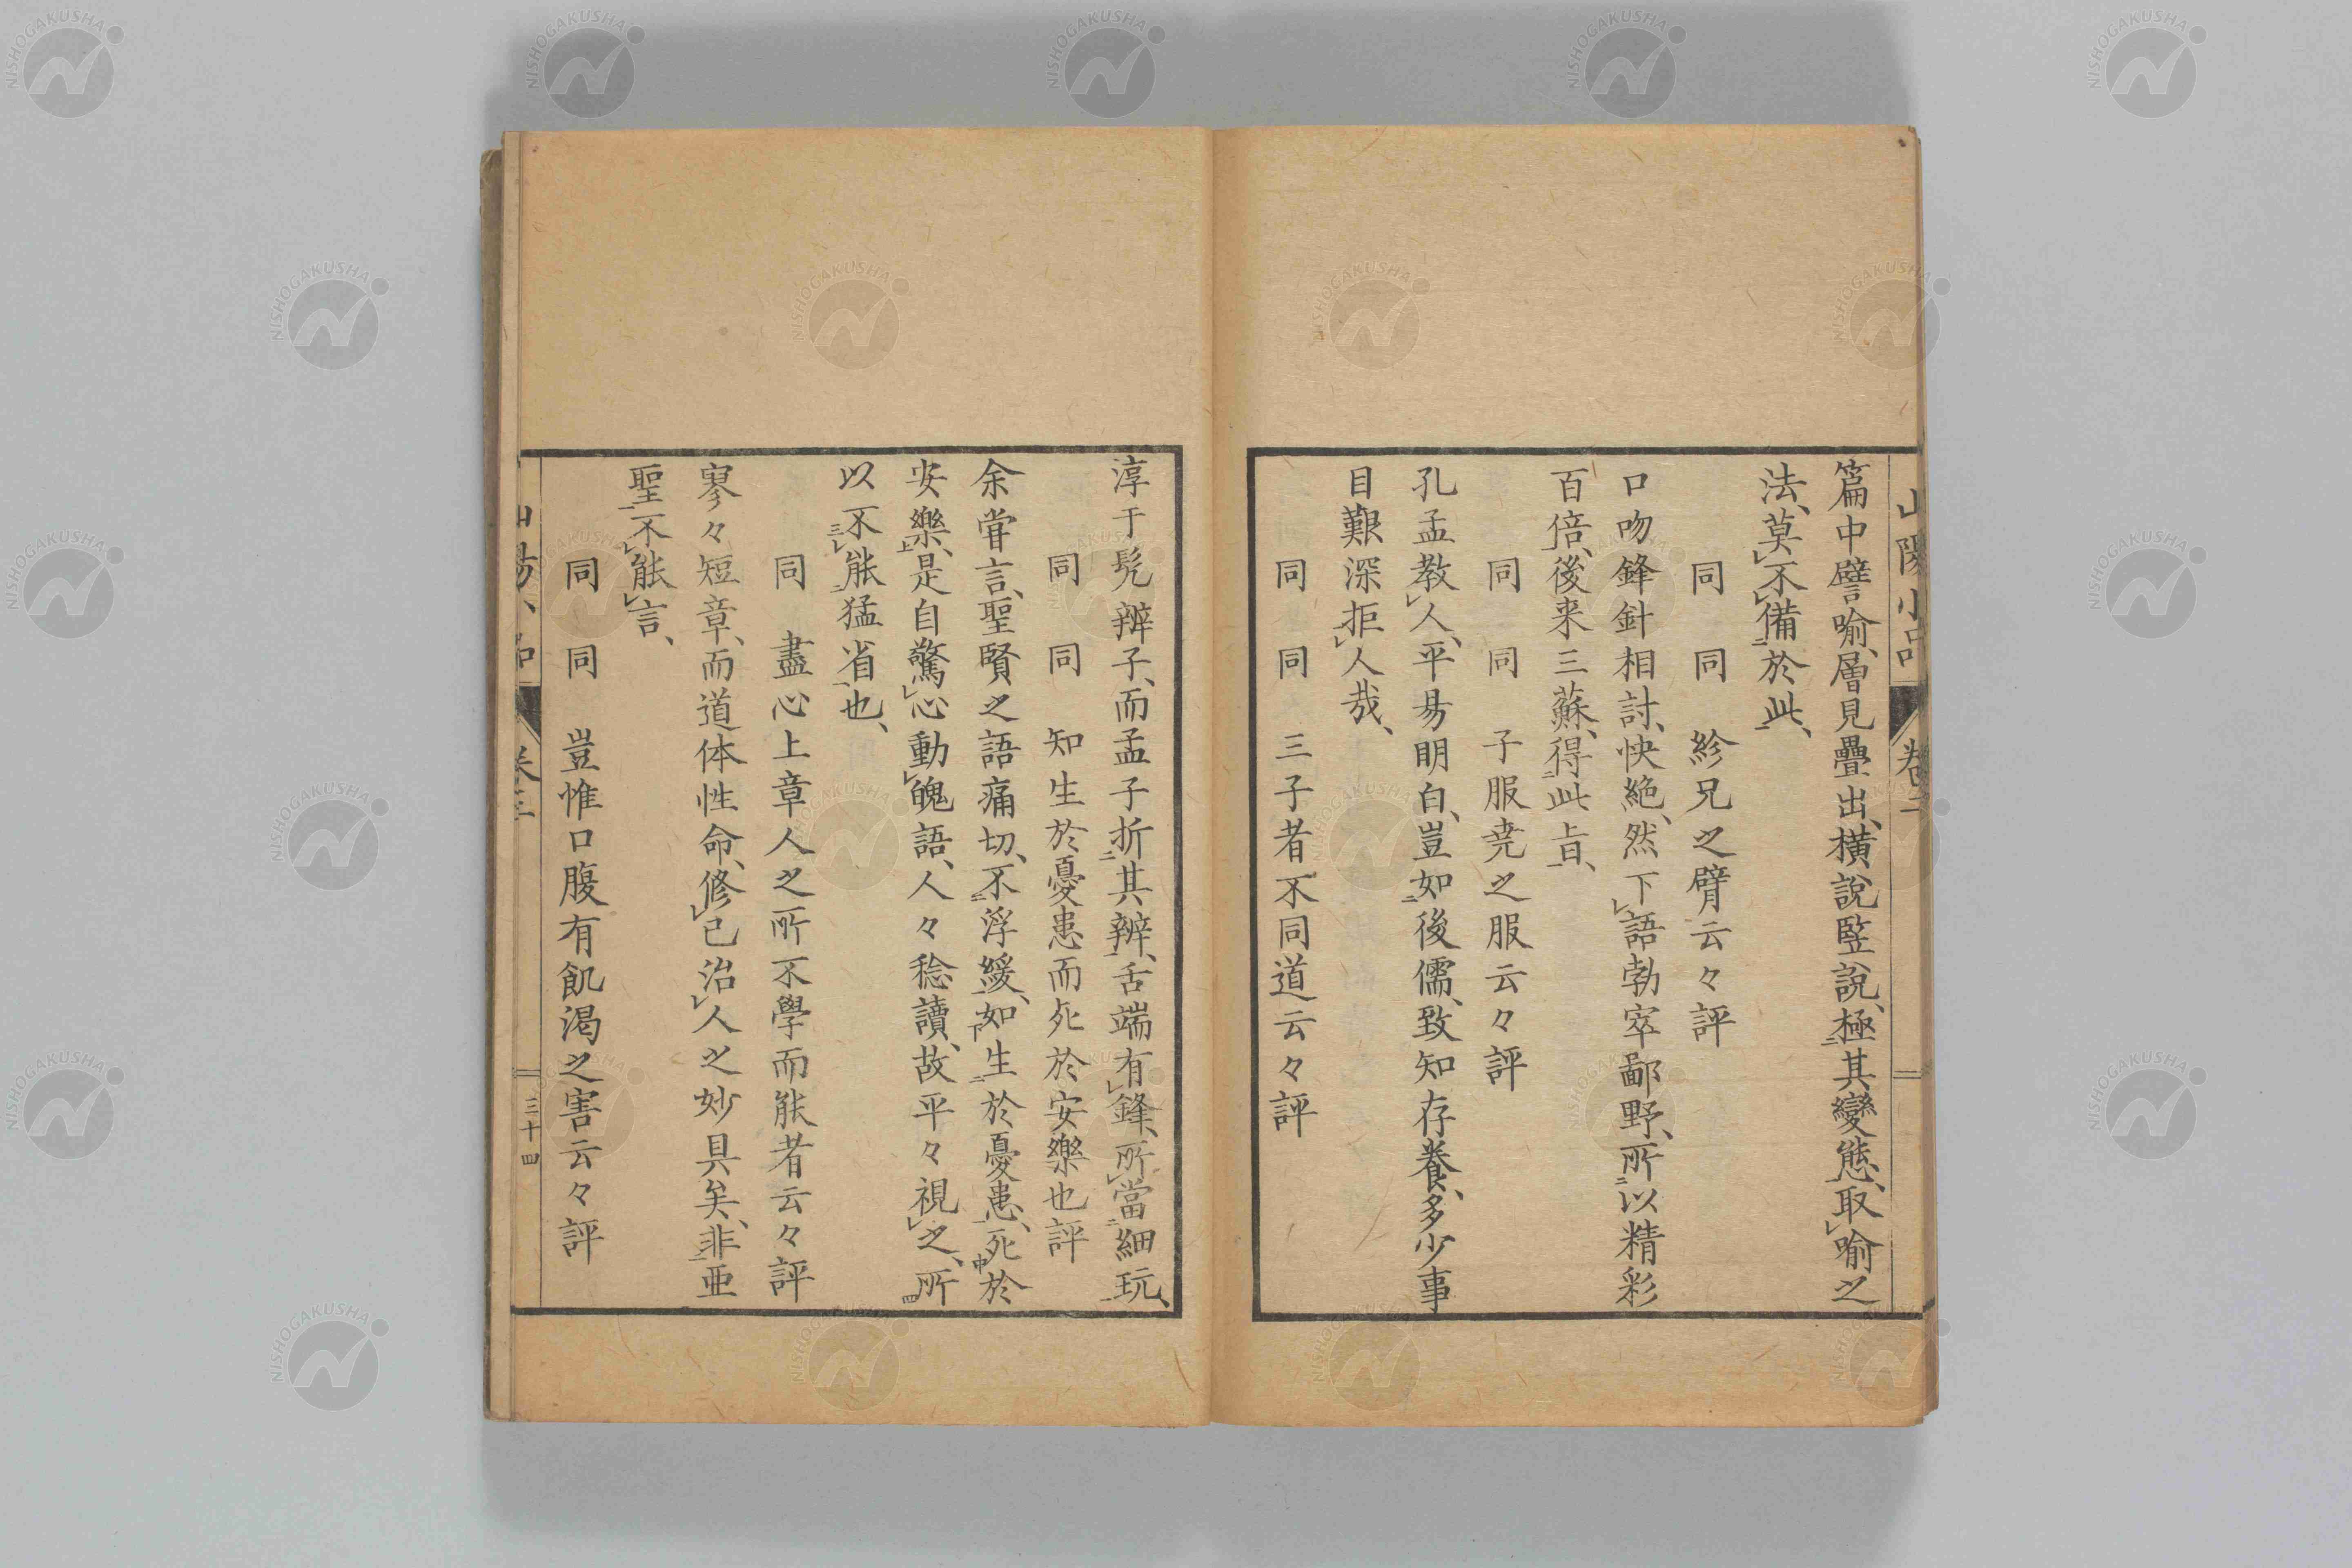 山陽小品 卷二
篇中譬喻、層見疊出、橫說竪說、極其變態、取喻之
法、莫不備於此、
同 同 紾兄之臂云々評
口吻鋒針相討、快絕、然下語勃窣鄙野、所以精彩
百倍、後来三蘇、得此旨、
同 同 子服尭之服云々評
孔孟教人、平易明白、豈如後儒、致知存養、多少事
目艱深拒人哉、
同 同 三子者不同道云々評
淳于髡辨子、而孟子折其辨、舌端有鋒、所當細玩、
同 同 知生於憂患而死於安樂也評
余甞言、聖賢之語痛切、不浮緩、如生於憂患、死於
安樂、是自驚心動魄語、人々稔讀、故平々視之、所
以不能猛省也、
同 盡心上章人之所不學而能者云々評
寥々短章、而道体性命、修己治人之妙具矣、非亜
聖不能言、
同 同 豈惟口腹有飢渴之害云々評
三十四
NISHOGAKUSHA